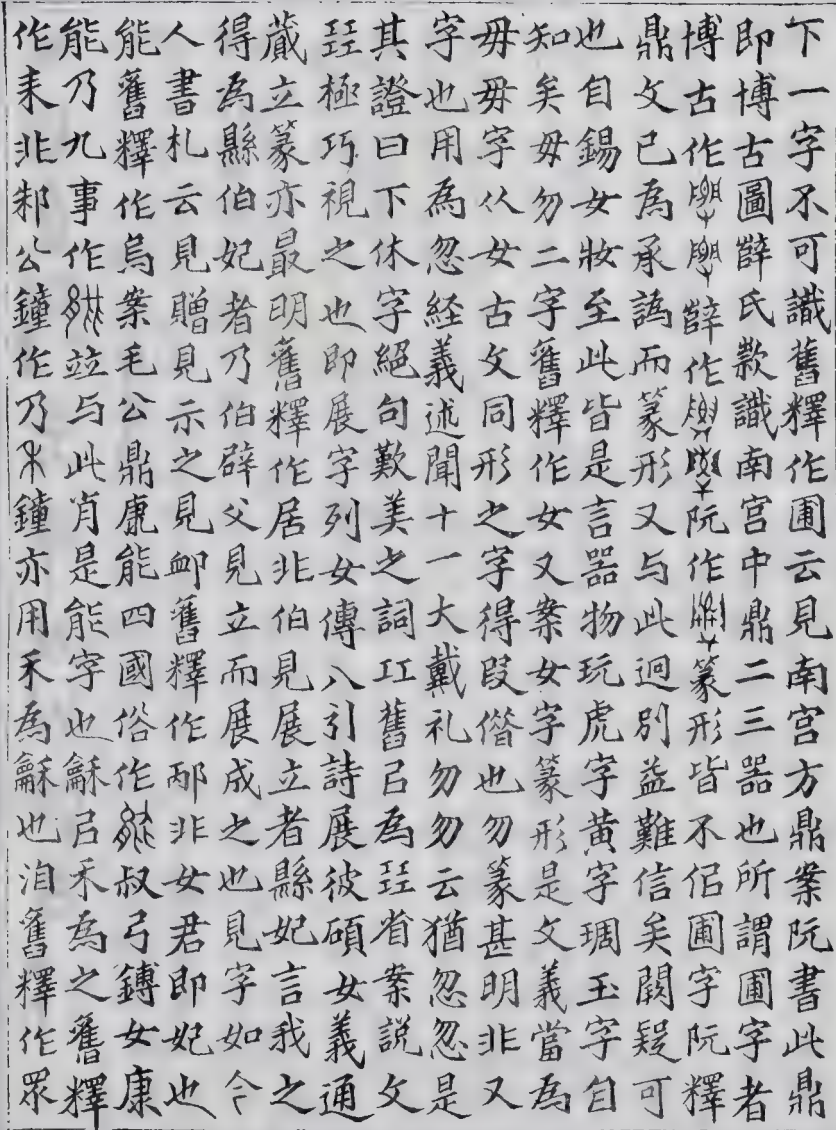 下一字不可識舊釋作圃云見南宮方鼎案阮書此鼎
即博古圖薛氏款識南宮中鼎二三器也所謂圃字者
博古作薛作阮作篆形皆不侣圃字阮釋
鼎文已為承譌而篆形又与此迥別益難信矣闕疑可
也自錫女妝至此皆是言器物玩虎字黃字琱玉字自
知矣毋勿二字舊釋作女又案女字篆形是文義當為
毋毋字从女古文同形之字得叚偕也勿篆甚明非又
字也用為忽経義述聞十一大戴礼勿勿云猶忽忽是
其證曰下休字絕句歎美之詞㠭舊㠯為㠭省案説文
㠭極巧視之也即展字列女傳八引詩展彼碩女義通
蕆立篆亦最明舊釋作居非伯見展立者縣妃言我之
得為縣伯妃者乃伯辟父見立而展成之也見字如今
人書札云見贈見示之見卹舊釋作邴非女君即妃也
能舊釋作烏案毛公鼎康能四國俗作叔弓鎛女康
能乃九事作竝与此肖是能字也龢㠯禾為之舊釋
作耒非邾公鐘作乃禾鐘亦用禾為龢也洎舊釋作眾